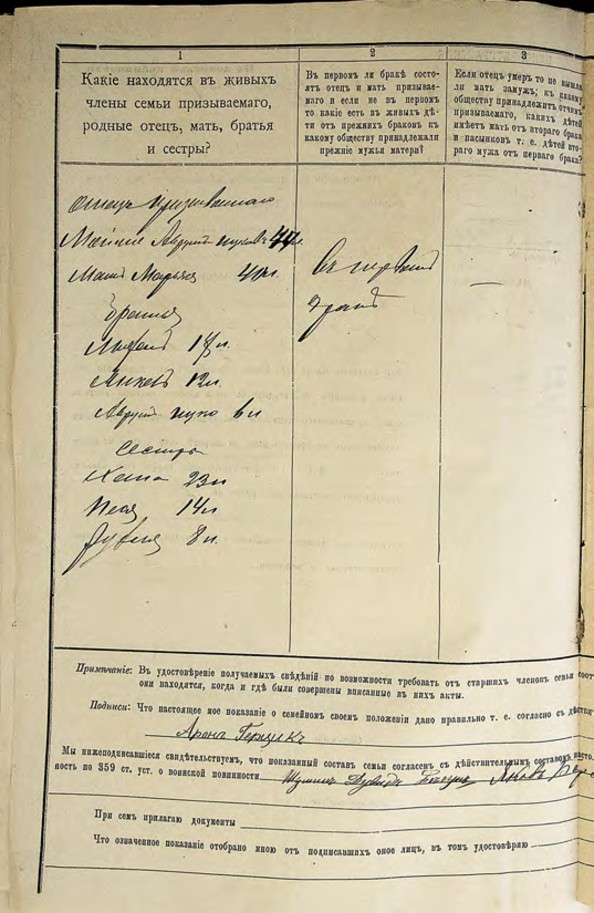 1
Какіе находятся въ живыхъ
члены семьи призываемаго,
родные отецъ, мать, братья
и сестры?
2
Въ первомъ ли бракѣ состо-
ятъ отецъ и мать призывае-
маго и если не въ первомъ
то какіе есть въ живыхъ дѣ-
ти отъ прежнихъ браковъ къ
какому обществу принадлежали
прежніе мужья матери?
3
Если отецъ умеръ то не вышла
ли мать замужъ; къ какому
обществу принадлежитъ отчимъ
призываемаго, какихъ дѣтей
имѣетъ мать отъ втораго брака
и пасынковъ т. е. дѣтей вто-
раго мужа отъ перваго брака?
отецъ
Ицковъ 47 л.
въ первомъ
Мать 40 л.
бракѣ
братья
18 л.
12 л.
Ицко 6 л
сестры
Хана 23 л
Песя 14 л
8 л.
Примѣчаніе: Въ удостовѣреніе получаемыхъ свѣдѣній по возможности требовать отъ старшихъ членовъ семьи
они находятся, когда и гдѣ были совершены вписанные въ нихъ акты.
Подписи: Что настоящее мое показаніе о семейномъ своемъ положеніи дано правильно т. е. согласно съ
Аронъ Герцикъ
Мы нижеподписавшіеся свидѣтельствуемъ, что показанный составъ семьи согласенъ съ дѣйствительнымъ составомъ
ность по 359 ст. уст. о воинской повинности
При семъ прилагаю документы
Что означенное показаніе отобрано мною отъ подписавшихъ оное лицъ, въ томъ удостовѣряю